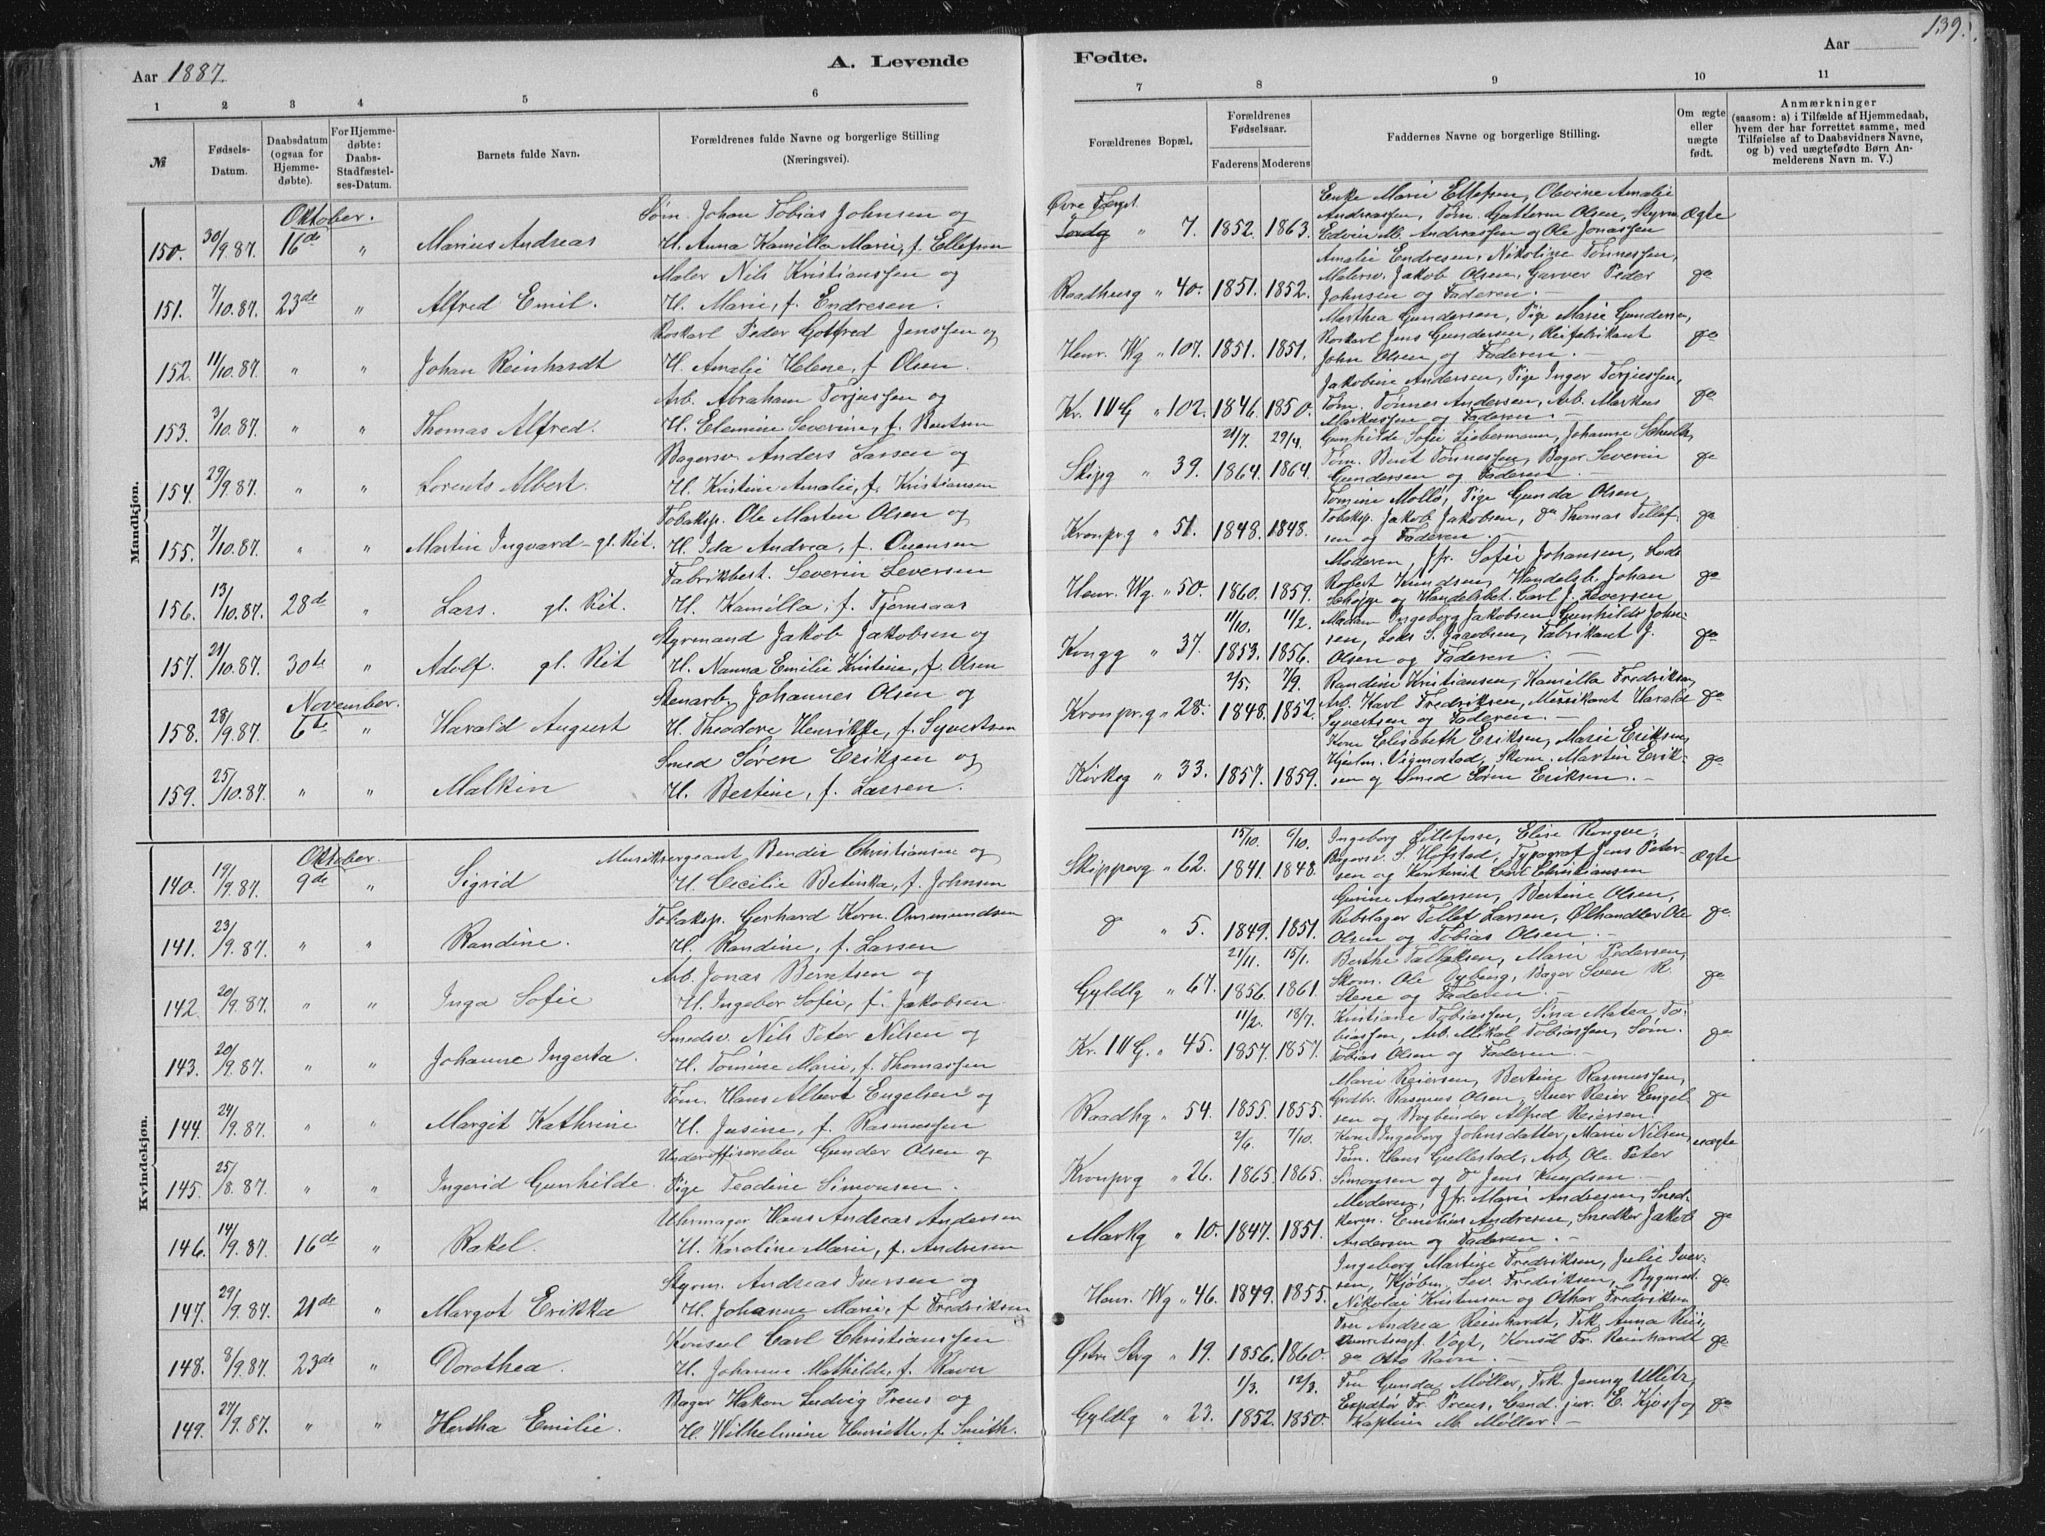 Aar 1887. A. Levende
Fødte. Aar 139.
1 2 3 4 5 6
7 8 9 10 11
№ Fødsels-Datum. Daabsdatum (ogsaa for Hjemmedøbte). For Hjemmedøbte: Daabs-Stadfæstelses-Datum. Barnets fulde Navn. Forældrenes fulde Navne og borgerlige Stilling (Næringsvei).
Forældrenes Bopæl. Forældrenes Fødselsaar. Faderens Moderens Faddernes Navne og Stilling. Om ægte eller uægte født. Anmærkninger (saasom: a) i Tilfælde af Hjemmedaab, hvem der har forrettet samme, med Tilføielse af to Daabsvidners Navne, og b) ved uægtefødte Børn Anmelderens Navn m. V.)
Mandkjøn.
Oktober.
Tøm. Johan Tobias Johnsen og
150. 30/9.87. 16de " Marius Andreas H. Anna Kamilla Marie, f. Ellefsen
Maler Nils Kristianssen og
151. 7/10.87. 23de " Alfred Emil. H. Marie, f. Endresen.
Roskarl Peder Gotfred Jenssen og
152. 11/10.87. " " Johan Reinhardt H. Amalie Helene, f. Olsen.
Arb. Abraham Torjussen og
153. 3/10.87. " " Thomas Alfred. H. Elemine Severine, f. Bentsen
Bagersv. Anders Larsen og
154. 29/9.87. " " Lorents Albert. H. Kristine Amalie, f. Kristiansen
Tobaksp. Ole Martin Olsen og
155. 7/10.87. " " Martin Ingvard - gl. Rit. H. Ida Andrea, f. Svensen
Fabrikbest. Severin Seversen
156. 13/10.87. 28de " Lars. gl. Rit. H. Kamilla, f. Tjomsaas
Styrmand Jakob Jakobsen og
157. 21/10.87. 30te " Adolf. gl. Rit H. Nanna Emilie Kristine, f. Olsen
November.
Stenarb. Johannes Olsen og
158. 28/9.87. 6te " Harald August H. Theodore Henrikke, f. Syvertsen
Smed Søren Eriksen og
159. 25/10.87. " " Malkin H. Bertine, f. Larsen.
Øvre Torvst. Enke Marie Ellefsen, Olevine Amalie
Andreassen, Tøm. Gatterm Olsen, Styrm.
Tordg " 7. 1852. 1863. Edvin M. Andreassen og Ole Jonassen Ægte
Amalie Endresen, Nikoline Tønnessen,
Malersv. Jakob Olsen, Garver Peder
Raadhusg " 40. 1851. 1852. Johnsen og Faderen. do
Marthea Gundersen, Pige Marie Gundersen,
Roskarl Jens Gundersen, Oliefabrikant
Henr. Wg " 107. 1851. 1851. John Olsen og Faderen. do
Jakobine Andersen, Pige Inger Torjussen,
Tøm. Tønnes Andersen, Arb. Markus
Kr. IV G " 102. 1846. 1850. Markussen og Faderen. do
21/7. 29/4. Gunhilde Sofie Liebermann, Johanne Schulth,
Tøm. Bent Tønnessen, Bager Severin
Skipg " 39. 1864. 1864. Gundersen og Faderen do
Tomine Mollø, Pige Gunda Olsen,
Tobaksp. Jakob Jakobsen, do Thomas Tellef-
Kronpr.g " 51. 1848. 1848. sen og Faderen. do
Moderen, Jfr. Sofie Johansen, Lods
Robert Knudsen, Handelsb. Johan
Henr. Wg. " 50. 1860. 1859. og Handelsbet. Carl J. Seversen do
11/10. 11/2. Madam Ingeborg Jakobsen, Gunhilde John-
sen, Lods S. Jacobsen, Fabrikant J.
Kongg " 37. 1853. 1856. Olsen og Faderen. do
2/5. 7/9. Randine Kristiansen, Kamilla Fredriksen,
Arb. Karl Fredriksen, Musikant Harald
Kronpr.g " 28. 1848. 1852. Syvertsen og Faderen. do
Kone Elisabeth Eriksen, Marie Eriksen,
Hjelm. Vigmostad, Skom. Martin Erik-
Kirkeg " 33. 1857. 1859. sen og Smed Søren Eriksen. do
Kvindekjøn.
Oktober.
Musiksergeant Bender Christiansen og
140. 19/9.87. 9de " Sigrid H. Cecilie Betinka, f. Johnsen
Tobaksp. Gerhard Korn. Omsmundsen
141. 23/9.87. " " Randine. H. Randine, f. Larsen
Arb. Jonas Berntsen og
142. 20/9.87. " " Inga Sofie H. Ingebor Sofie, f. Jakobsen
Smedsv. Nils Peter Nilsen og
143. 20/9.87. " " Johanne Ingerta. H. Tomine Marie, f. Thomassen
Tøm. Hans Albert Engelsen og
144. 24/9.87. " " Margit Kathrine H. Jusine, f. Rasmussen
Underofficerelev Gunder Olsen og
145. 25/8.87. " " Ingerid Gunhilde. Pige Teodine Simonsen.
Uhrmager Hans Andreas Andersen
146. 14/9.87. 16de " Rakel. H. Karoline Marie, f. Andresen
Styrm. Andreas Iversen og
147. 29/9.87. 21de " Margot Erikka H. Johanne Marie, f. Fredriksen
Konsul Carl Christianssen
148. 8/9.87. 23de " Dorothea. H. Johanne Mathilde, f. Ravn
Bager Hakon Ludvig Preus og
149. 27/9.87. " " Hertha Emilie. H. Wilhelmine Henriette, f. Smith.
15/10. 6/10. Ingeborg Lillefosse, Elise Rongve,
Bagersv. S. Hofstad, Typograf Jens Peter-
Skipperg " 62. 1841. 1848. sen og Kontorist Carl Christiansen Ægte
Gurine Andersen, Bertine Olsen,
Rebslager Tellef Larsen, Ølhandler Ole
do " 5. 1849. 1851. Olsen og Tobias Olsen. do
21/11. 15/1. Berthe Tallaksen, Marie Pedersen,
Skom. Ole Dybing, Bager Sven R.
Gyldlg " 67. 1856. 1861. Stene og Faderen. do
11/2. 18/7. Kristiane Tobiassen, Sina Matea To-
biassen, Arb. Mikal Tobiassen, Tøm.
Kr. IV G. " 45. 1857. 1857. Tobias Olsen og Faderen. do
Marie Reiersen, Bertine Rasmussen,
Grdbr. Rasmus Olsen, Stuer Reier Engel-
Raadhg " 54. 1855. 1855. sen og Bogbinder Alfred Reiersen. do
2/6. 7/10. Kone Ingeborg Johnsdatter, Marie Nilsen,
Tøm. Hans Gullestad, Arb. Ole Peter
Kronprg " 26. 1865. 1865. Simonsen og do Jens Knudsen. uægte
Moderen, Jfr. Marie Andresen, Sned-
kerm. Emilius Andresen, Snedker Jakob
Markg " 10. 1847. 1851. Andersen og Faderen. do
Ingeborg Martine Fredriksen, Julie Iver-
sen, Kjøbm. Sev. Fredriksen, Bygmest.
Henr. Wg " 46. 1849. 1855. Nikolai Kristensen og Othar Fredriksen do
Fru Andrea Reinhardt, Frk. Anna Riis,
Vogt, Konsul Fr. Reinhardt
Østre Strg " 19. 1856. 1860. do Otto Ravn. do
1/3. 12/3. Fru Gunda Møller, Frk. Jenny Ullitz,
Expditør Fr. Preus, Cand. jur. E. Kjøs og
Gyldlg " 23. 1852. 1850. Kaptein M. Møller. do